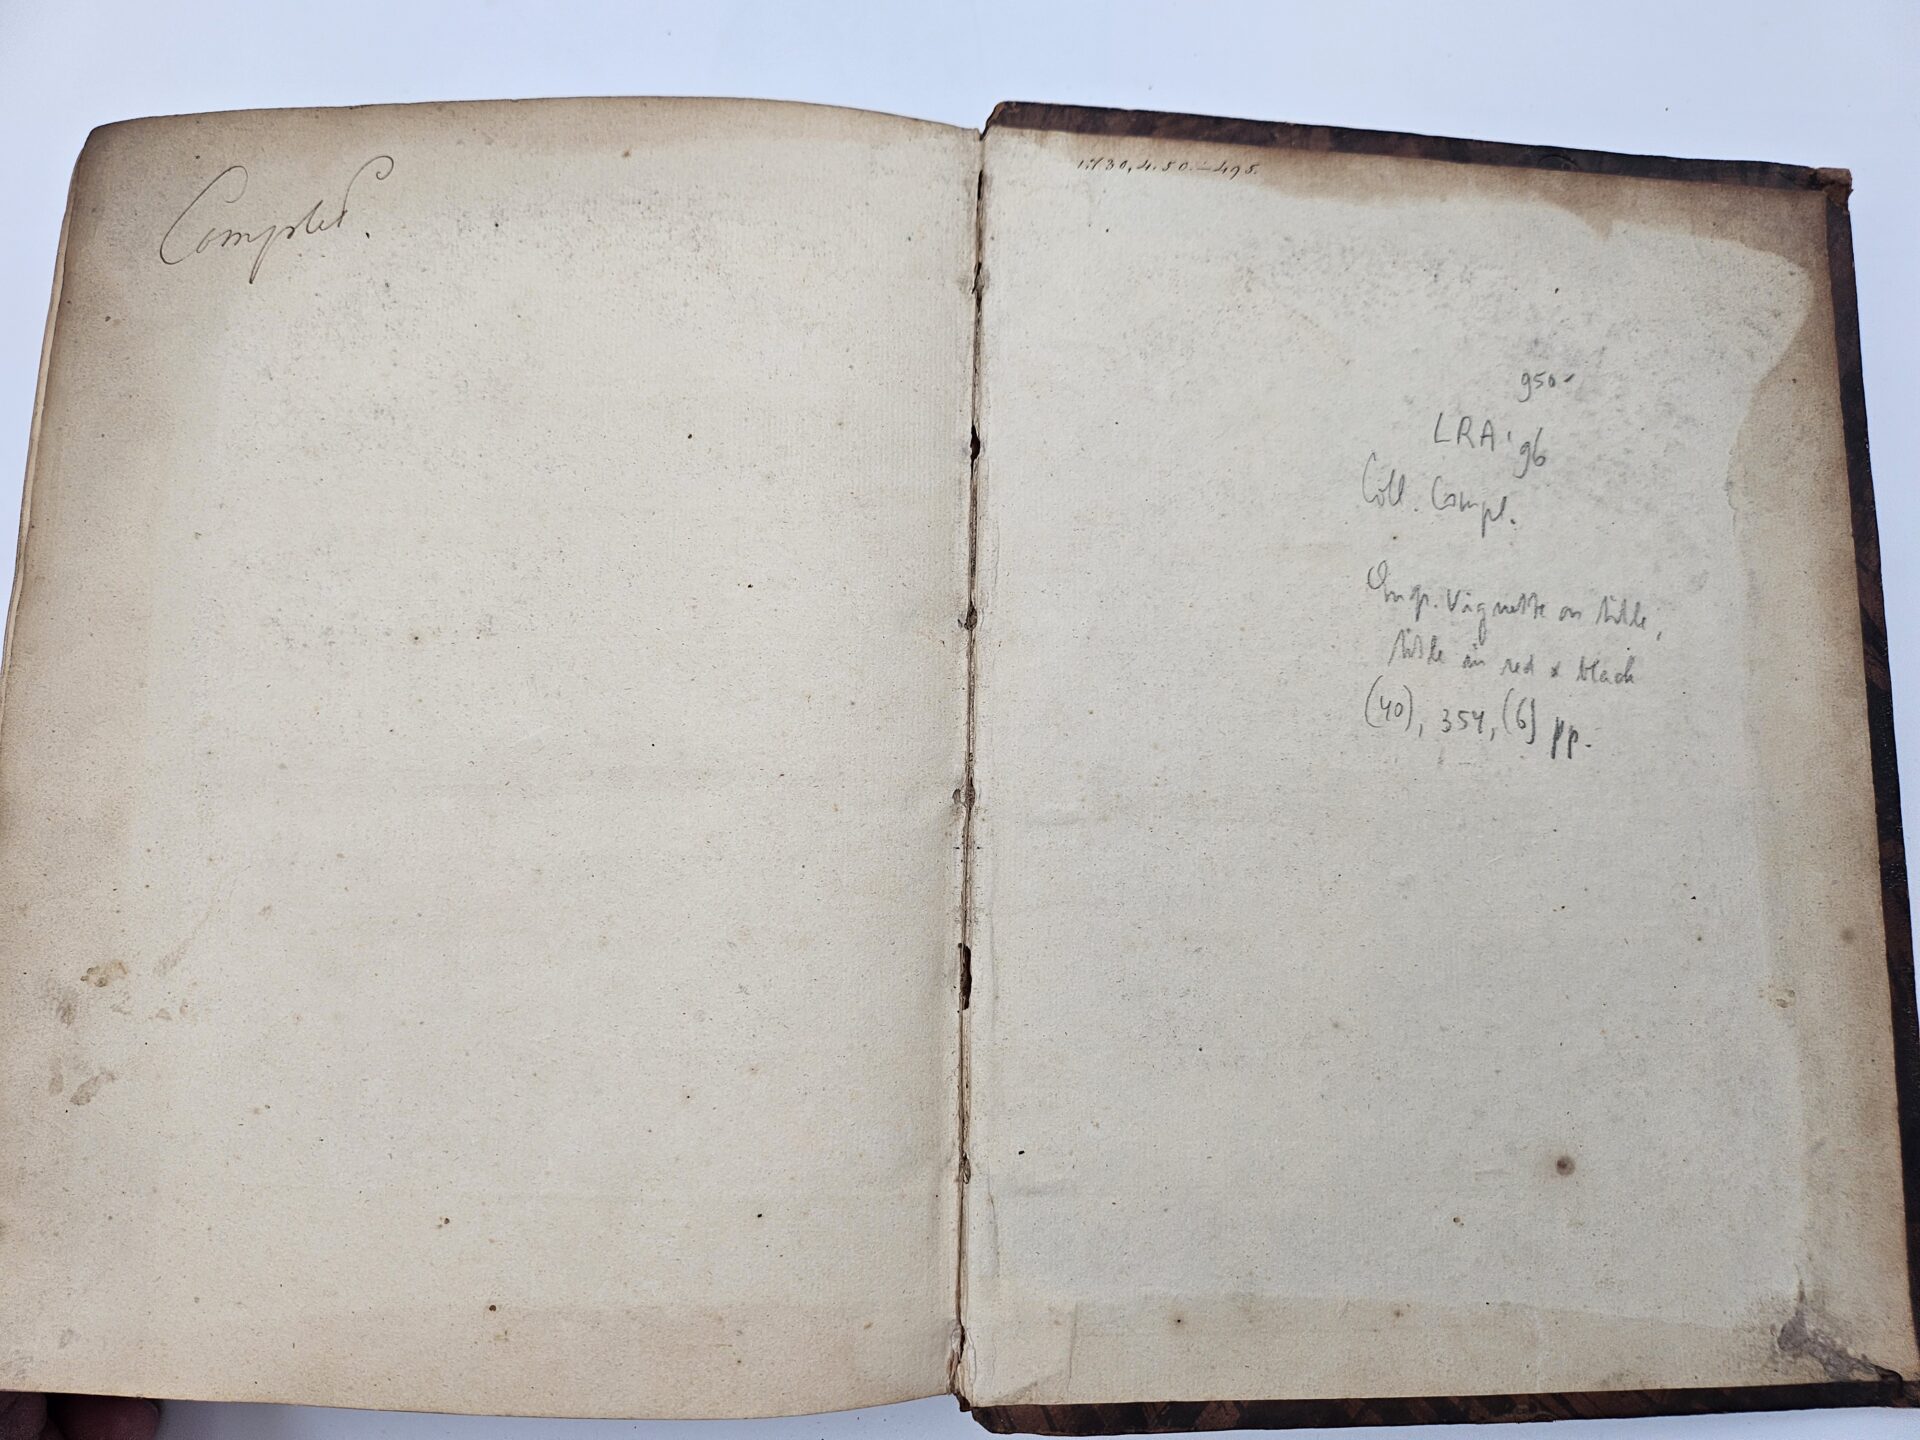 Complet.
950-
LRA '96
Coll. Compl.
Engr. Vignette on title,
title in red & black
(40), 354, (6) pp.